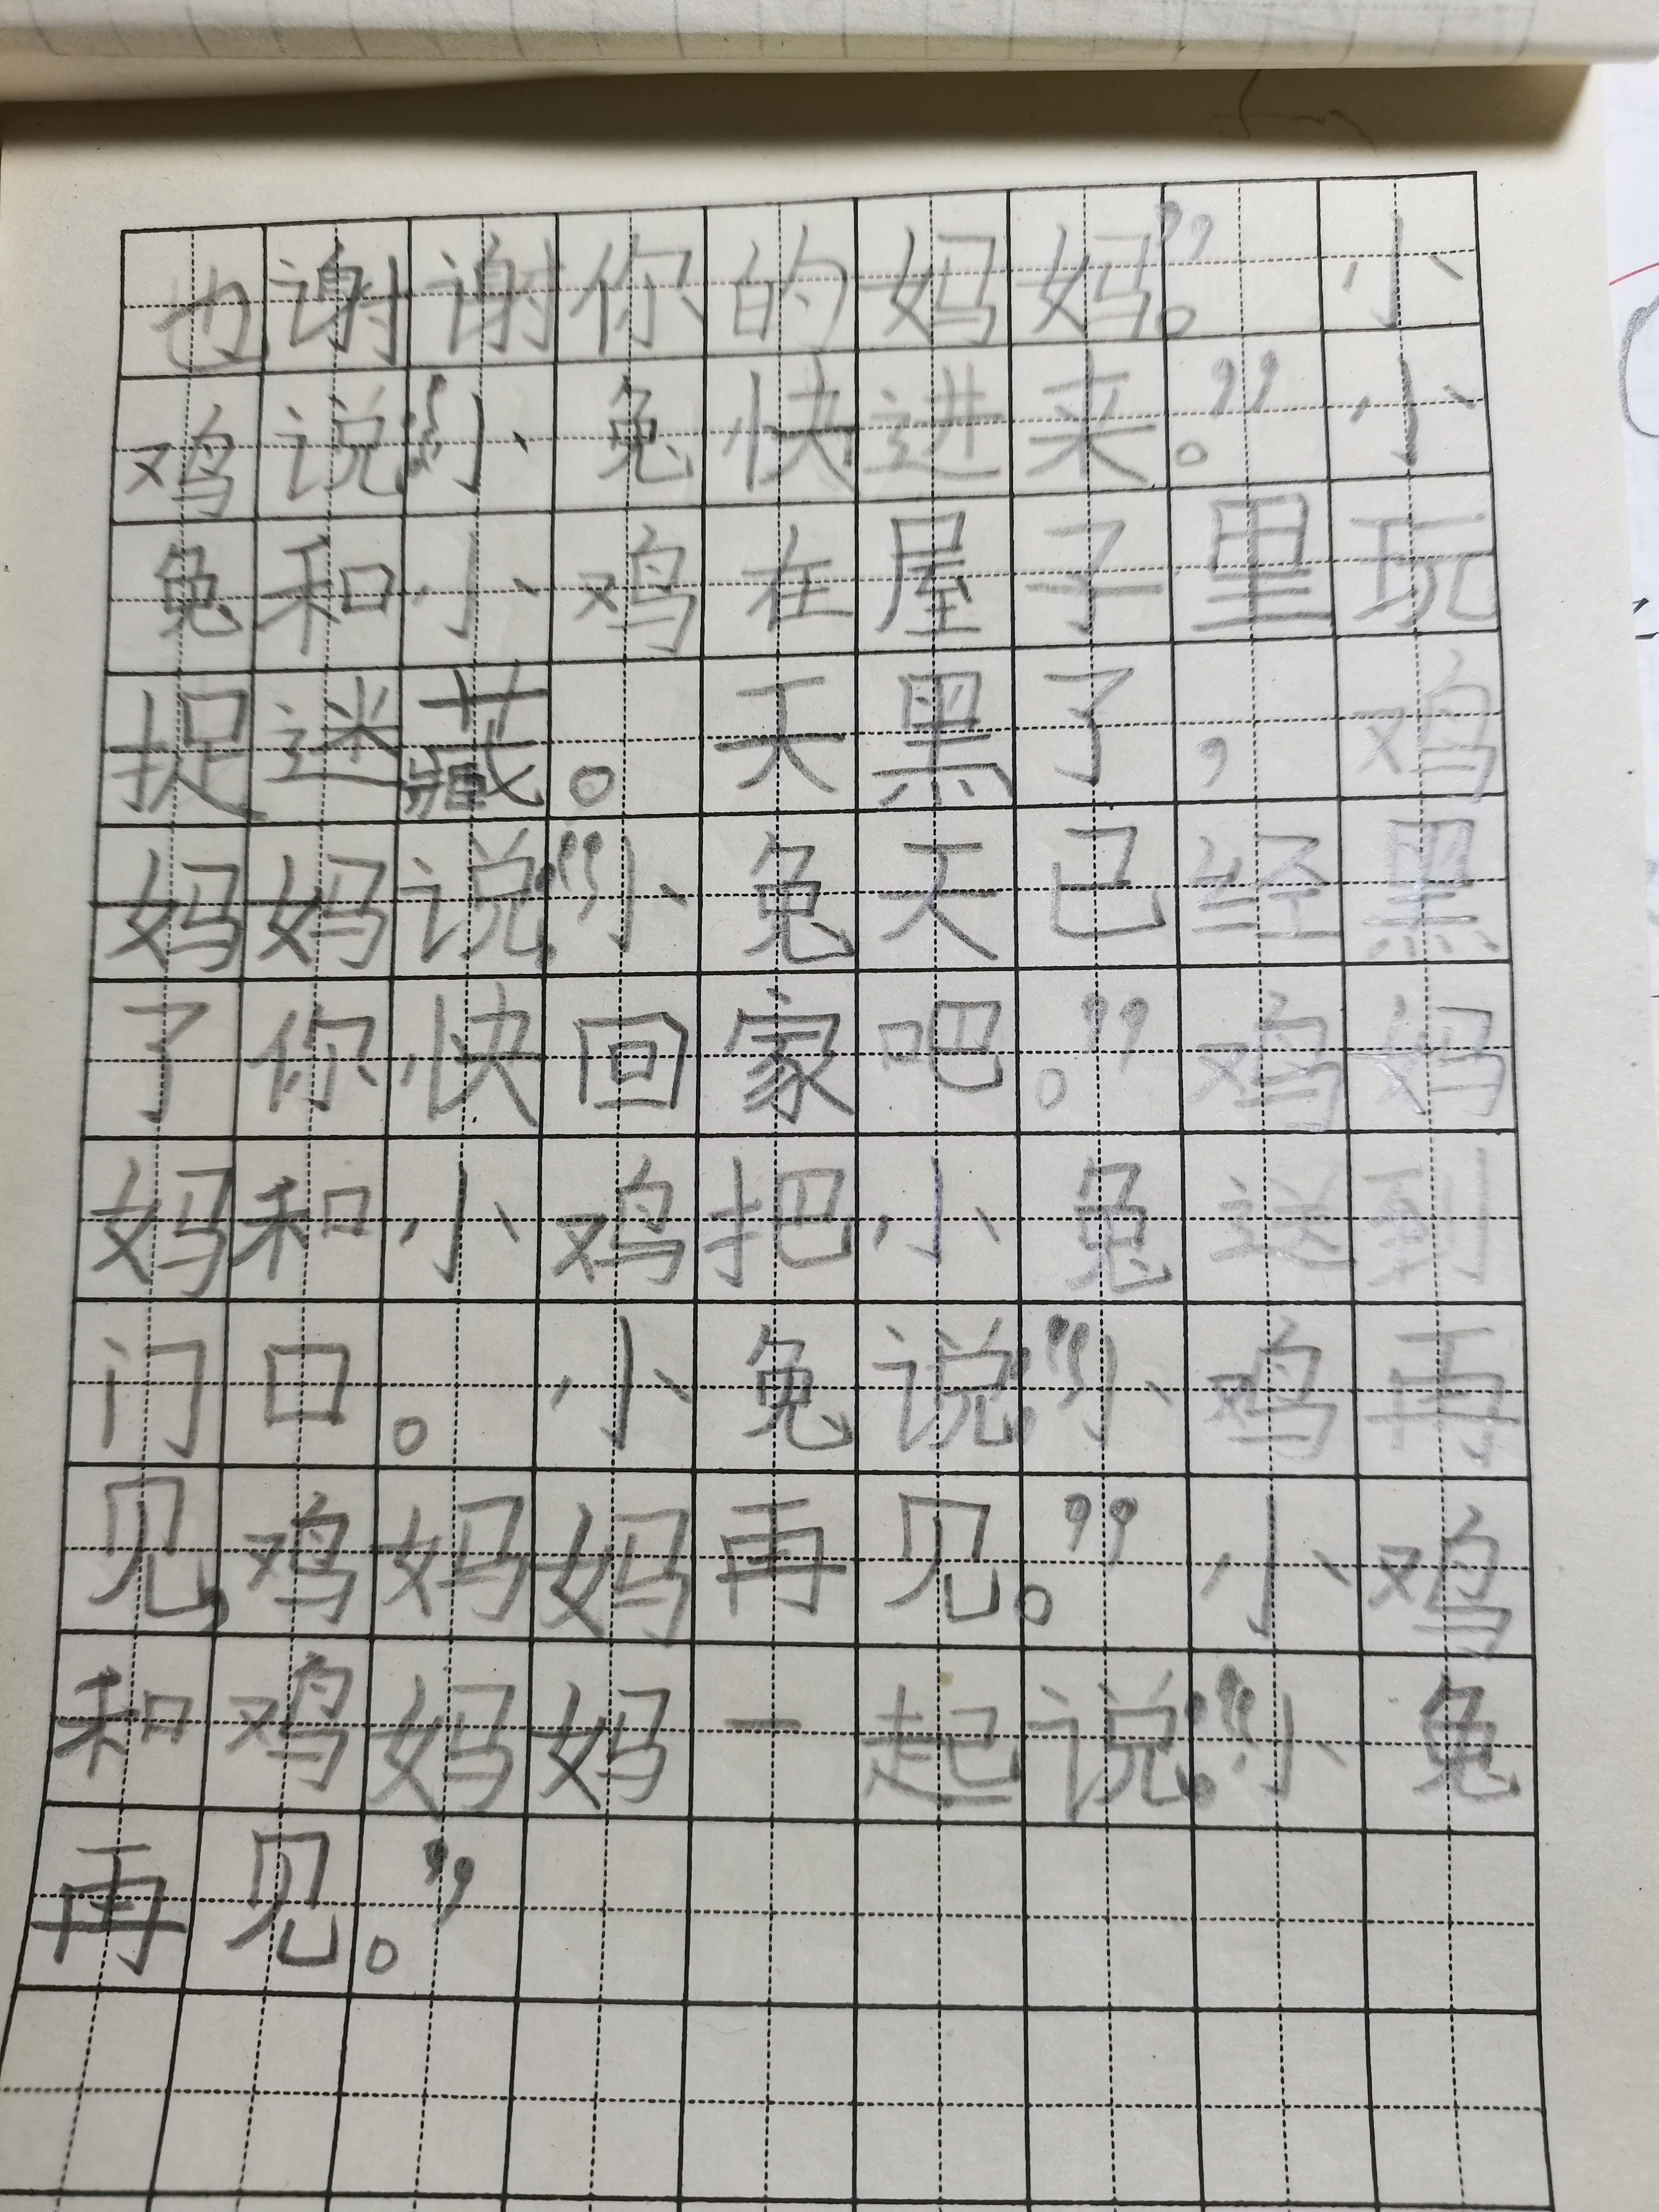 也谢谢你的妈妈。”小
鸡说：“小兔快进来。”小
兔和小鸡在屋子里玩
捉迷藏。天黑了，鸡
妈妈说：“小兔天已经黑
了你快回家吧。”鸡妈
妈和小鸡把小兔送到
门口。小兔说：“小鸡再
见，鸡妈妈再见。”小鸡
和鸡妈妈一起说：“小兔
再见。”